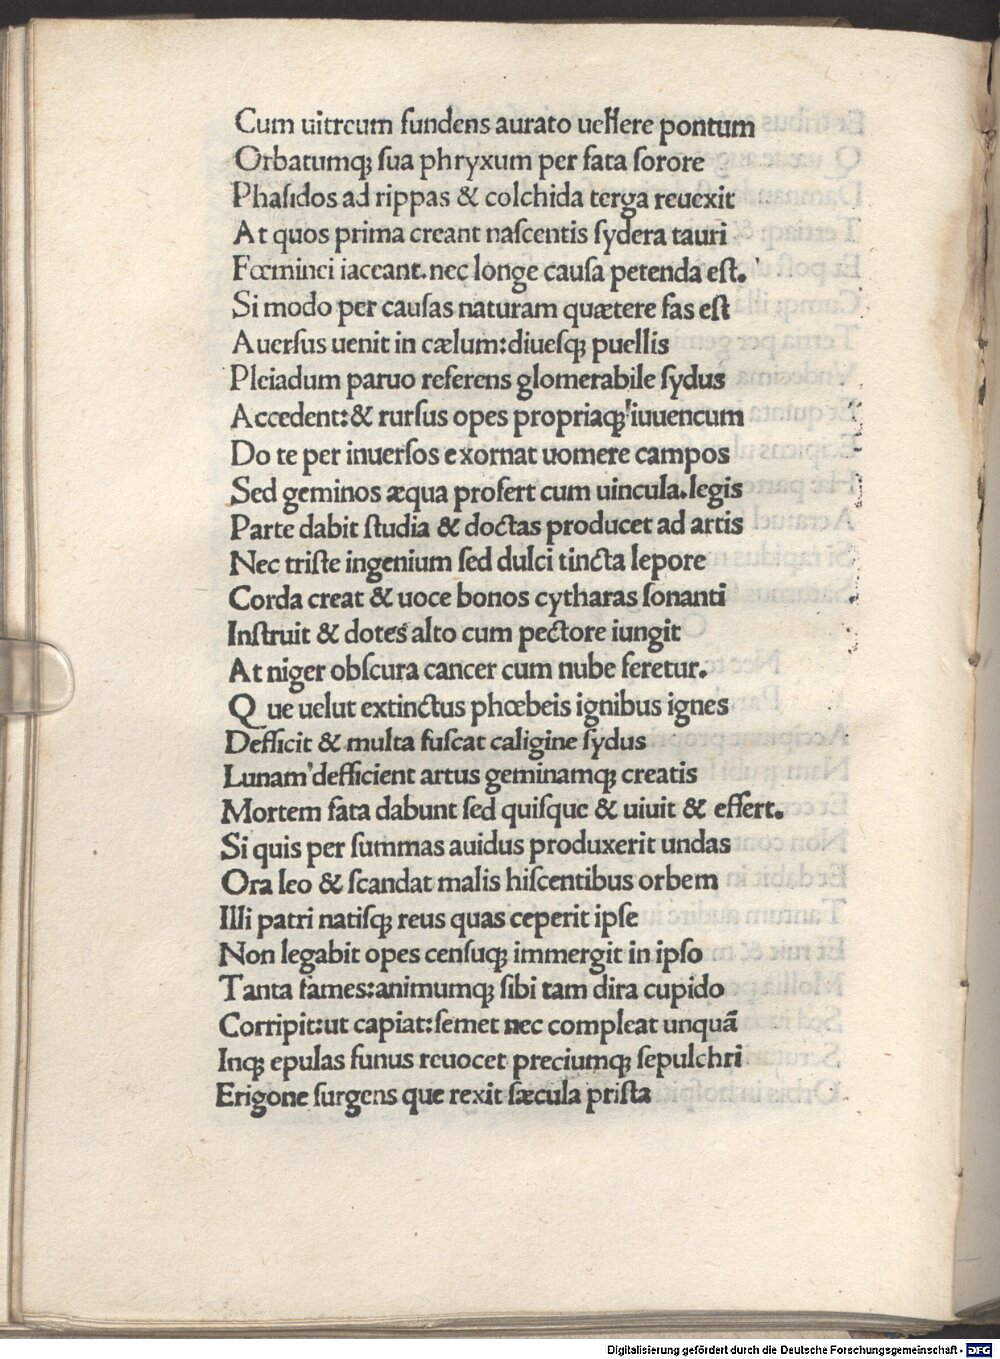 Cum uitreum fundens aurato uellere pontum
Orbatumqꝫ sua phryxum per fata sorore
Phasidos ad rippas & colchida terga reuexit
At quos prima creant nascentis sydera tauri
Fœminei iaceant. nec longe causa petenda est.
Si modo per causas naturam quætere fas est
Auersus uenit in cælum: diuesqꝫ puellis
Pleiadum paruo referens glomerabile sydus
Accedent: & rursus opes propriaqꝫ iuuencum
Do te per inuersos exornat uomere campos
Sed geminos æqua profert cum uincula. legis
Parte dabit studia & doctas producet ad artis
Nec triste ingenium sed dulci tincta lepore
Corda creat & uoce bonos cytharas sonanti
Instruit & dotes alto cum pectore iungit
At niger obscura cancer cum nube feretur.
Que uelut extinctus phœbeis ignibus ignes
Defficit & multa fuscat caligine sydus
Lunam defficient artus geminamqꝫ creatis
Mortem fata dabunt sed quisque & uiuit & effert.
Si quis per summas auidus produxerit undas
Ora leo & scandat malis hiscentibus orbem
Illi patri natisqꝫ reus quas ceperit ipse
Non legabit opes censuqꝫ immergit in ipso
Tanta fames: animumqꝫ sibi tam dira cupido
Corripit: ut capiat: semet nec compleat unquā
Inqꝫ epulas funus reuocet preciumqꝫ sepulchri
Erigone surgens que rexit sæcula prista
Digitalisierung gefördert durch die Deutsche Forschungsgemeinschaft - DFG